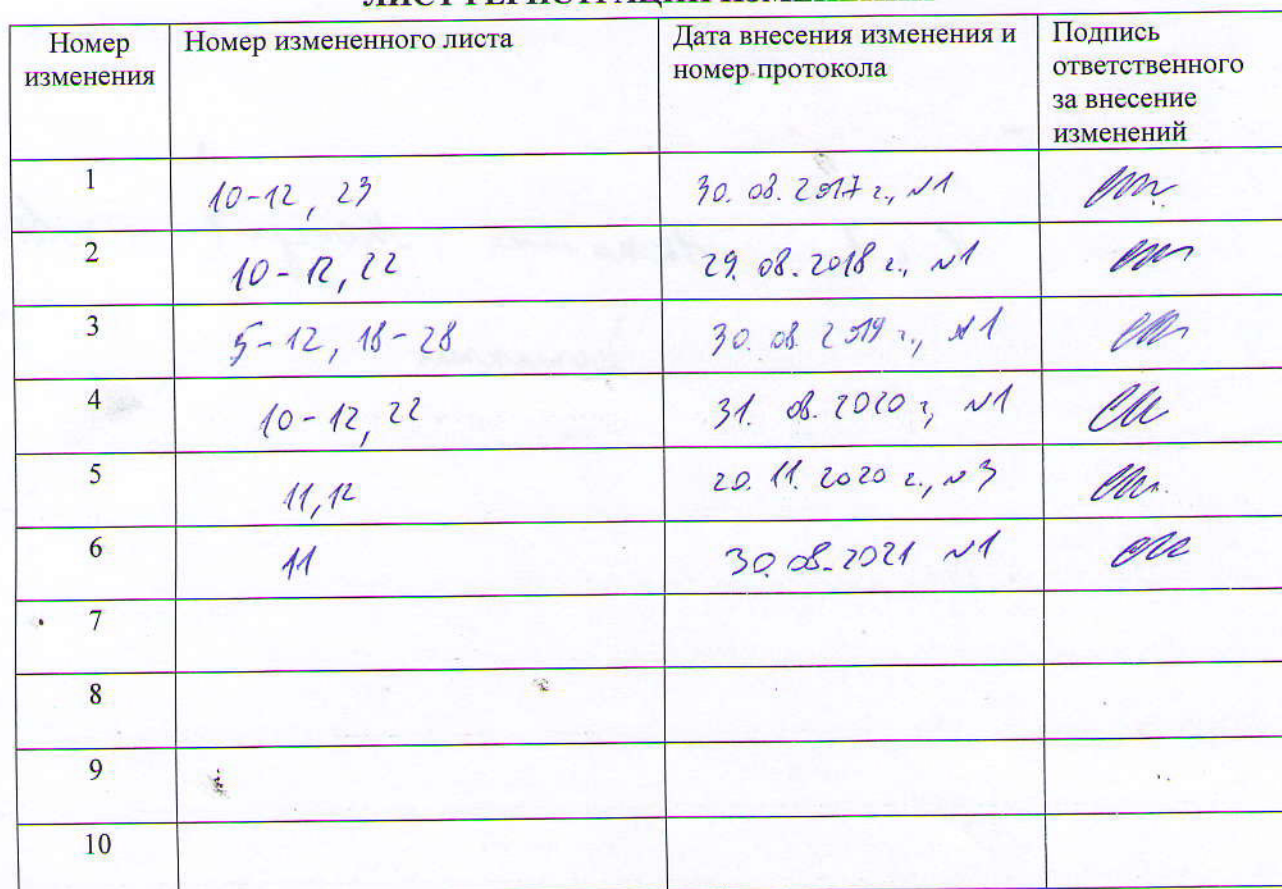 ЛИСТ РЕГИСТРАЦИИ ИЗМЕНЕНИЙ
Номер изменения | Номер измененного листа | Дата внесения изменения и номер протокола | Подпись ответственного за внесение изменений
1 | 10-12, 23 | 30. 08. 2017 г., №1
2 | 10-12, 22 | 29. 08. 2018 г., №1
3 | 5-12, 18-28 | 30. 08. 2019 г., №1
4 | 10-12, 22 | 31. 08. 2020 г, №1
5 | 11, 12 | 20. 11. 2020 г., №3
6 | 11 | 30. 08. 2021 №1
7
8
9
10